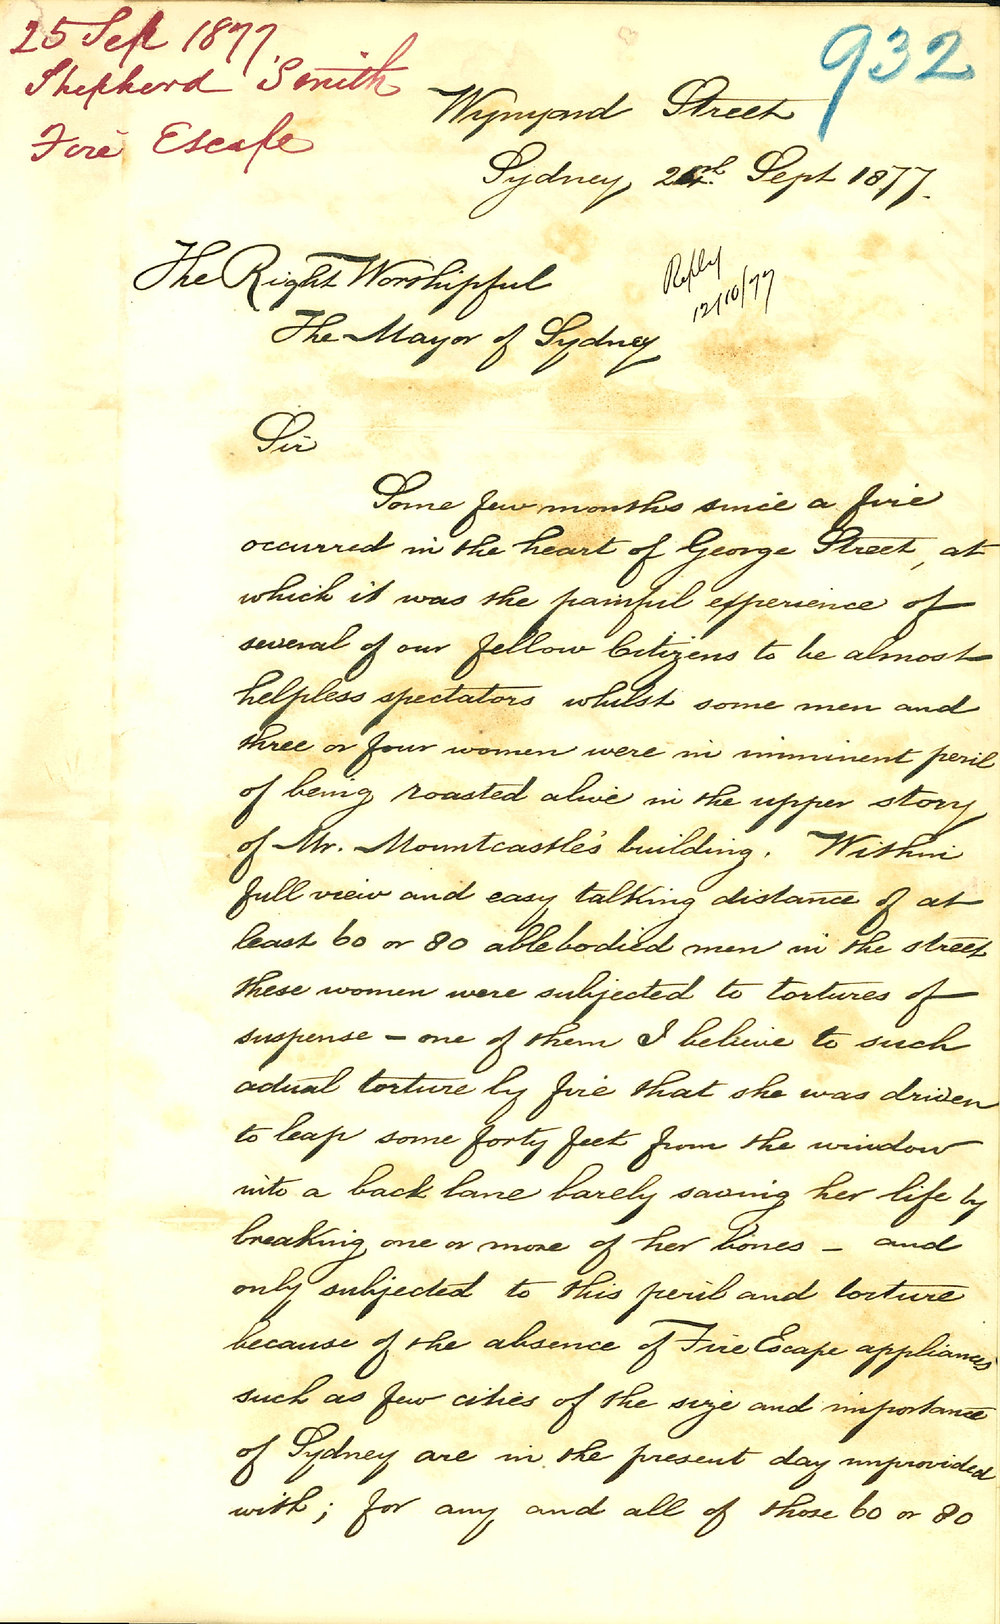 25 Sept 1877
Shepherd Smith
Fire Escape
932
Wynyard Street
Sydney, Sept 1877.
The Right Worshipful
The Mayor of Sydney
Reply
12/10/77
Sir
Some few months since a fire
occurred in the heart of George Street, at
which it was the painful experience of
several of our fellow Citizens to be almost
helpless spectators whilst some men and
three or four women were in imminent peril
of being roasted alive in the upper story
of Mr. Mountcastle's building. Within
full view and easy talking distance of at
least 60 or 80 ablebodied men in the street
these women were subjected to tortures of
suspense – one of them I believe to such
actual torture by fire that she was driven
to leap some forty feet from the window
into a back lane barely saving her life by
breaking one or more of her bones – and
only subjected to this peril and torture
because of the absence of Fire Escape appliances
such as few cities of the size and importance
of Sydney are in the present day unprovided
with; for any and all of those 60 or 80